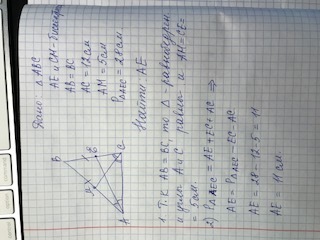 Дано: △ABC
AE и CM - биссектр
AB = BC
AC = 12 см
AM = 5 см
P△AEC = 28 см
Найти AE
B
M
E
A
C
1. Т.к AB = BC, то △ - равнобедрен
и углы A и C равны и AM = CE =
= 5 см.
2) P△AEC = AE + EC + AC ⇒
AE = P△AEC - EC - AC
AE = 28 - 12 - 5 = 11
AE = 11 см